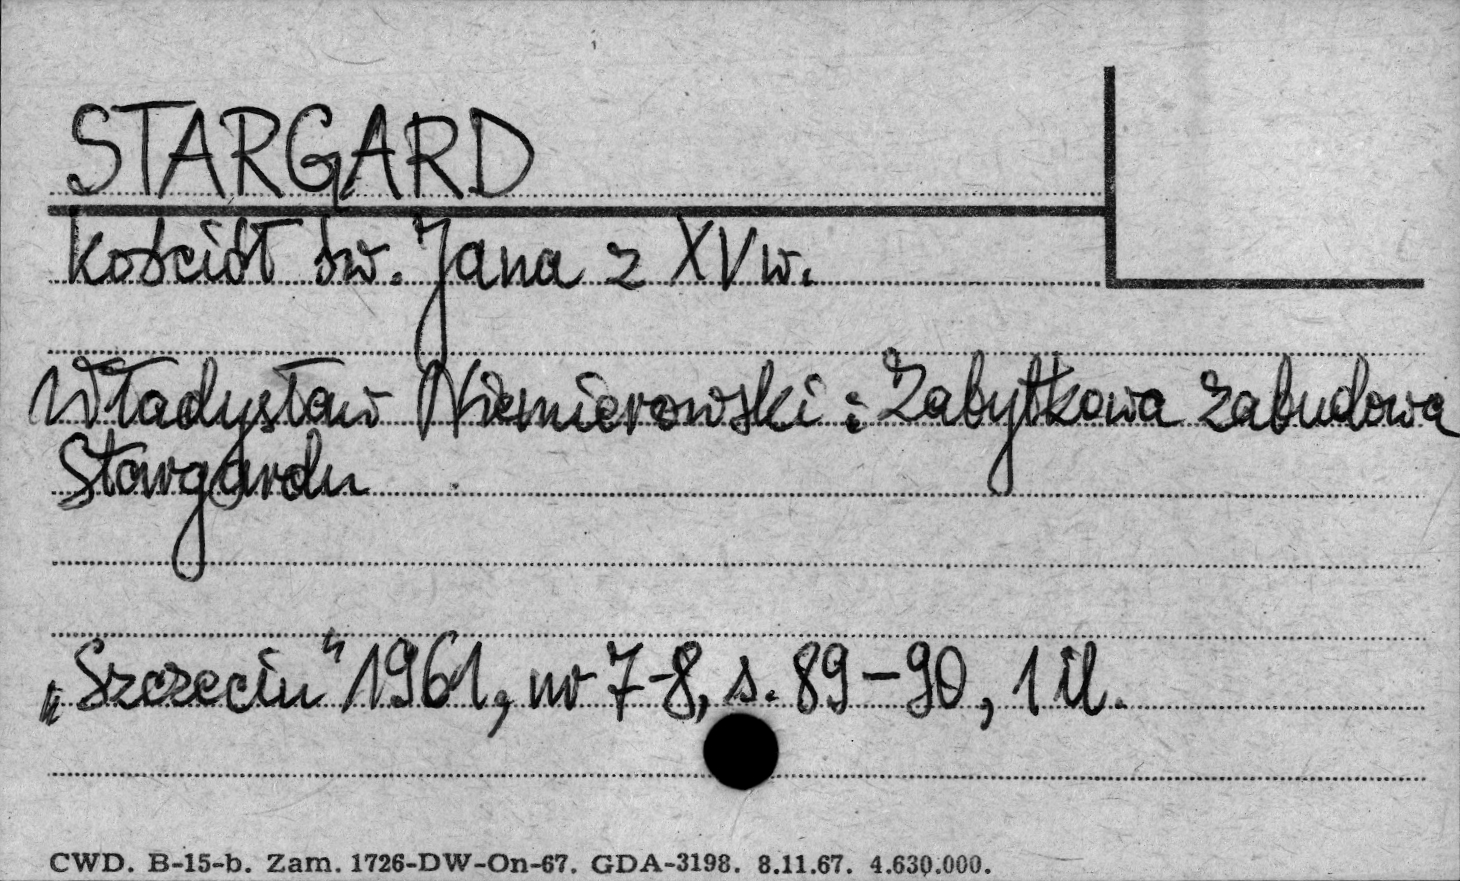 STARGARD
kościół św. Jana z XV w.
Władysław Niemierowski: Zabytkowa zabudowa
Stargardu
„Szczecin" 1961, nr 7-8, s. 89-90, 1 il.
CWD. B-15-b. Zam. 1726-DW-On-67. GDA-3198. 8.11.67. 4.630.000.